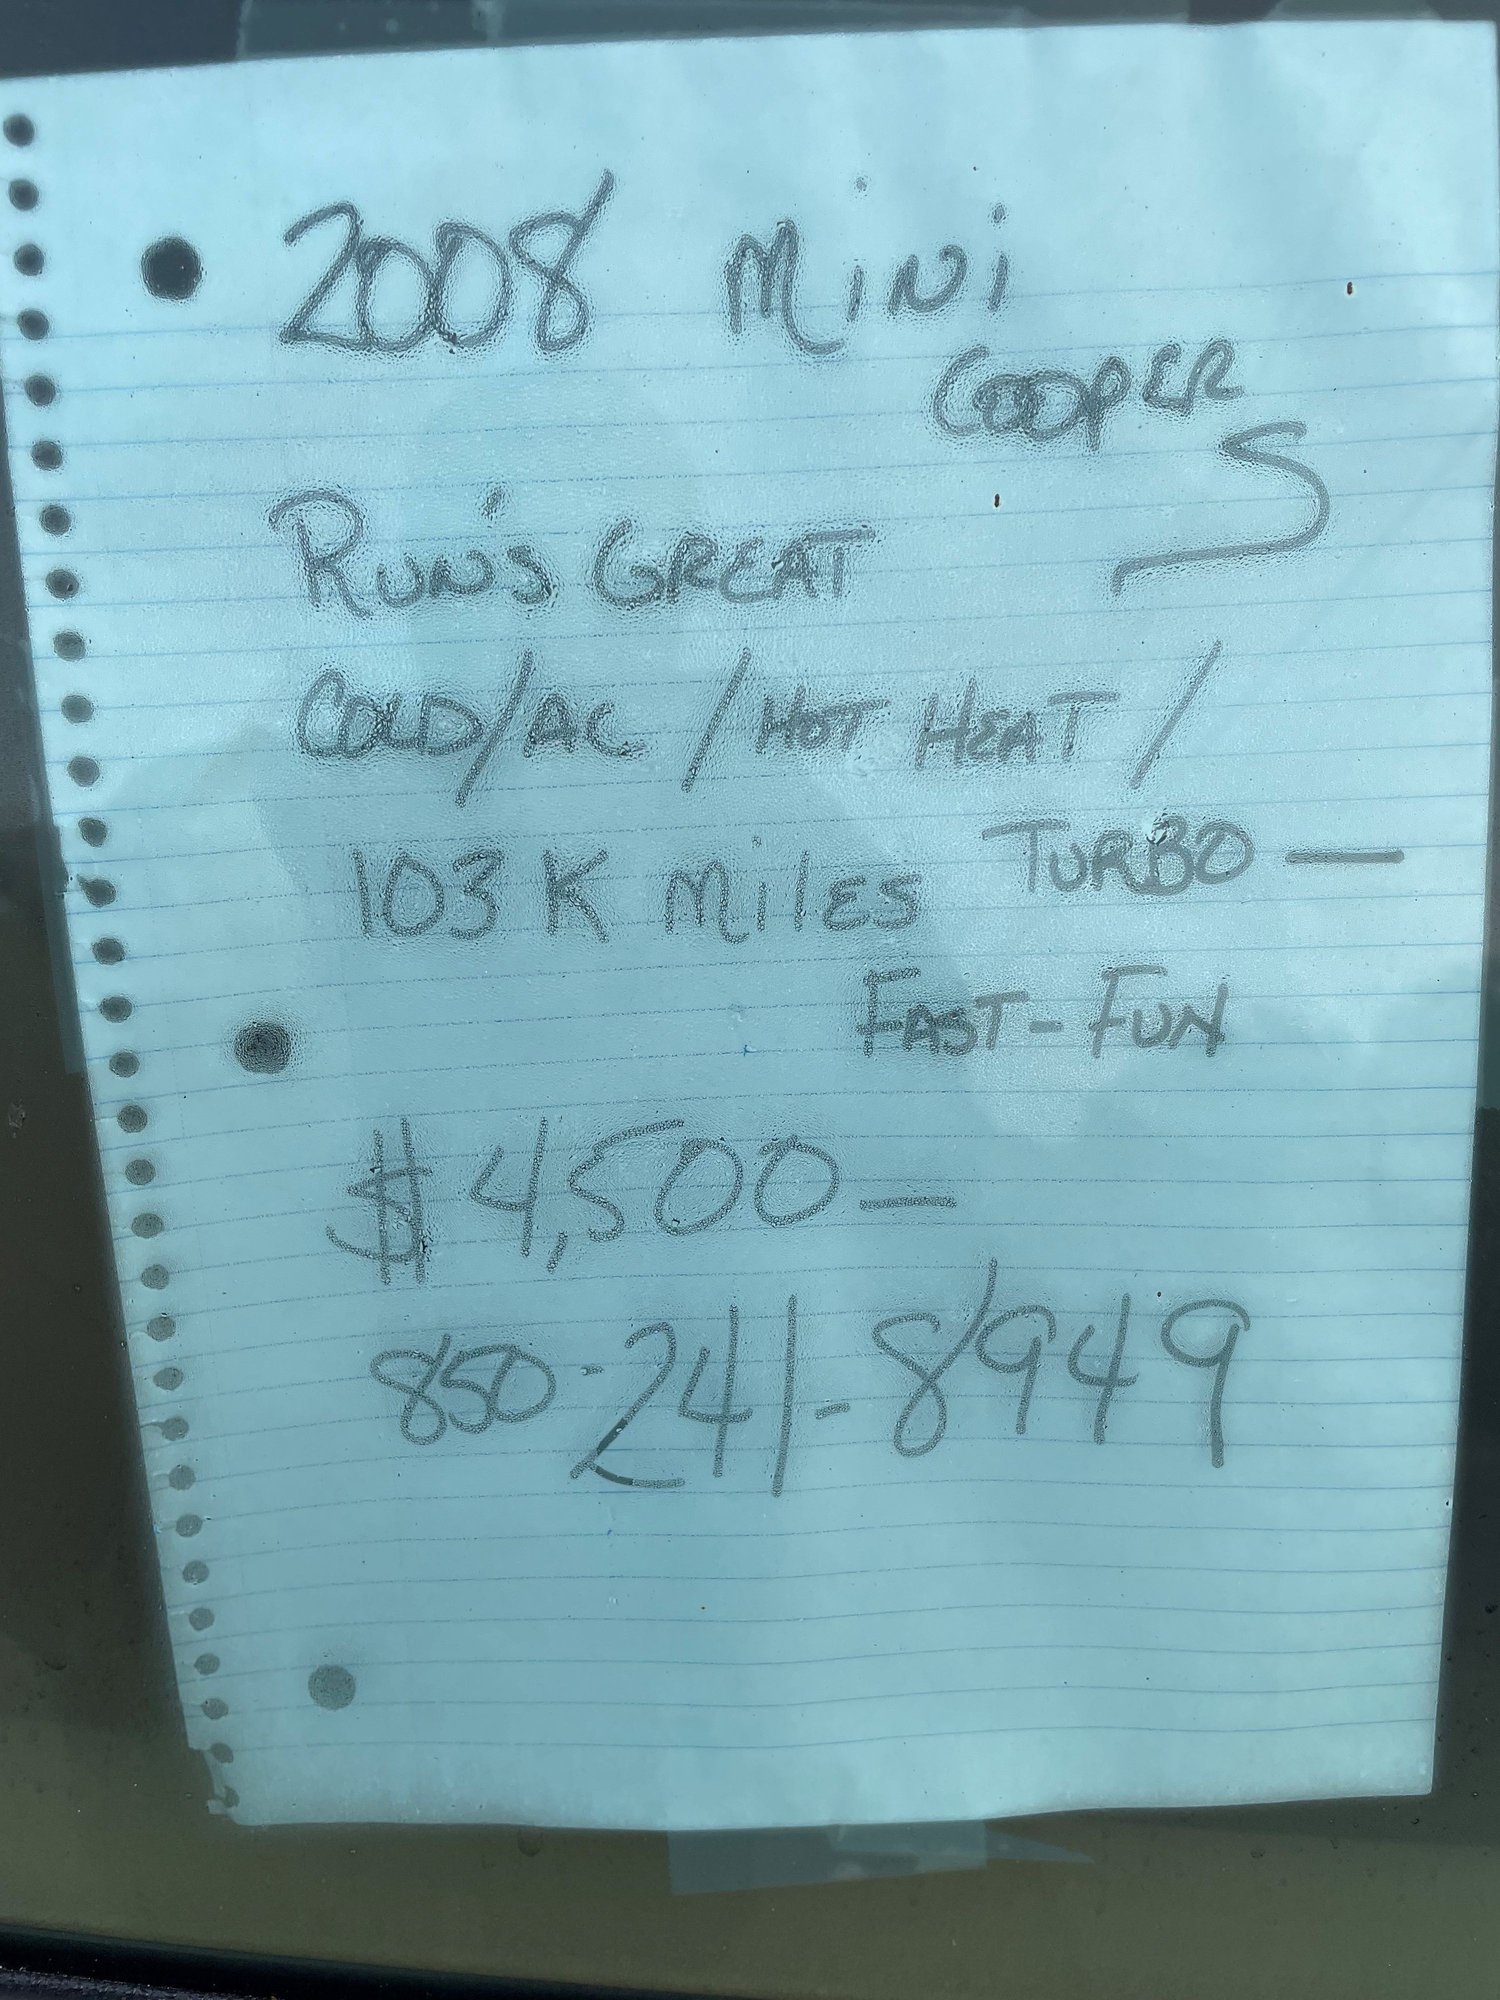 2008 Mini
Cooper
S
Run's Great
Cold/AC / Hot Heat /
Turbo —
103K Miles
Fast - Fun
$4,500—
850-241-8949